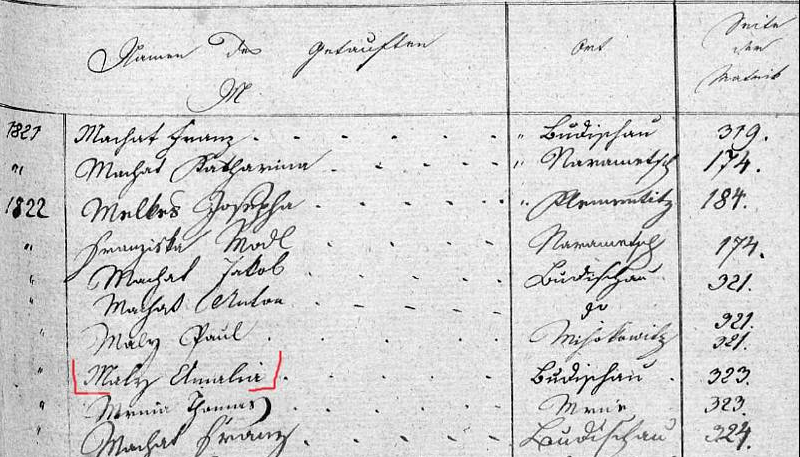 Namen des Getauften Ort Seite der Matrik
M
1821 Machat Franz " Budischau 319.
" Machat Katharina " Narametsch 174.
1822 Melkes Josepha " Klementitz 184.
" Franziska Modl Narametsch 174.
" Machat Jakob Budischau 321.
" Machat Anton do 321.
" Maly Paul 321.
" Maly Amalia Budischau 323.
" Thomas 323.
" Machat Franz Budischau 324.